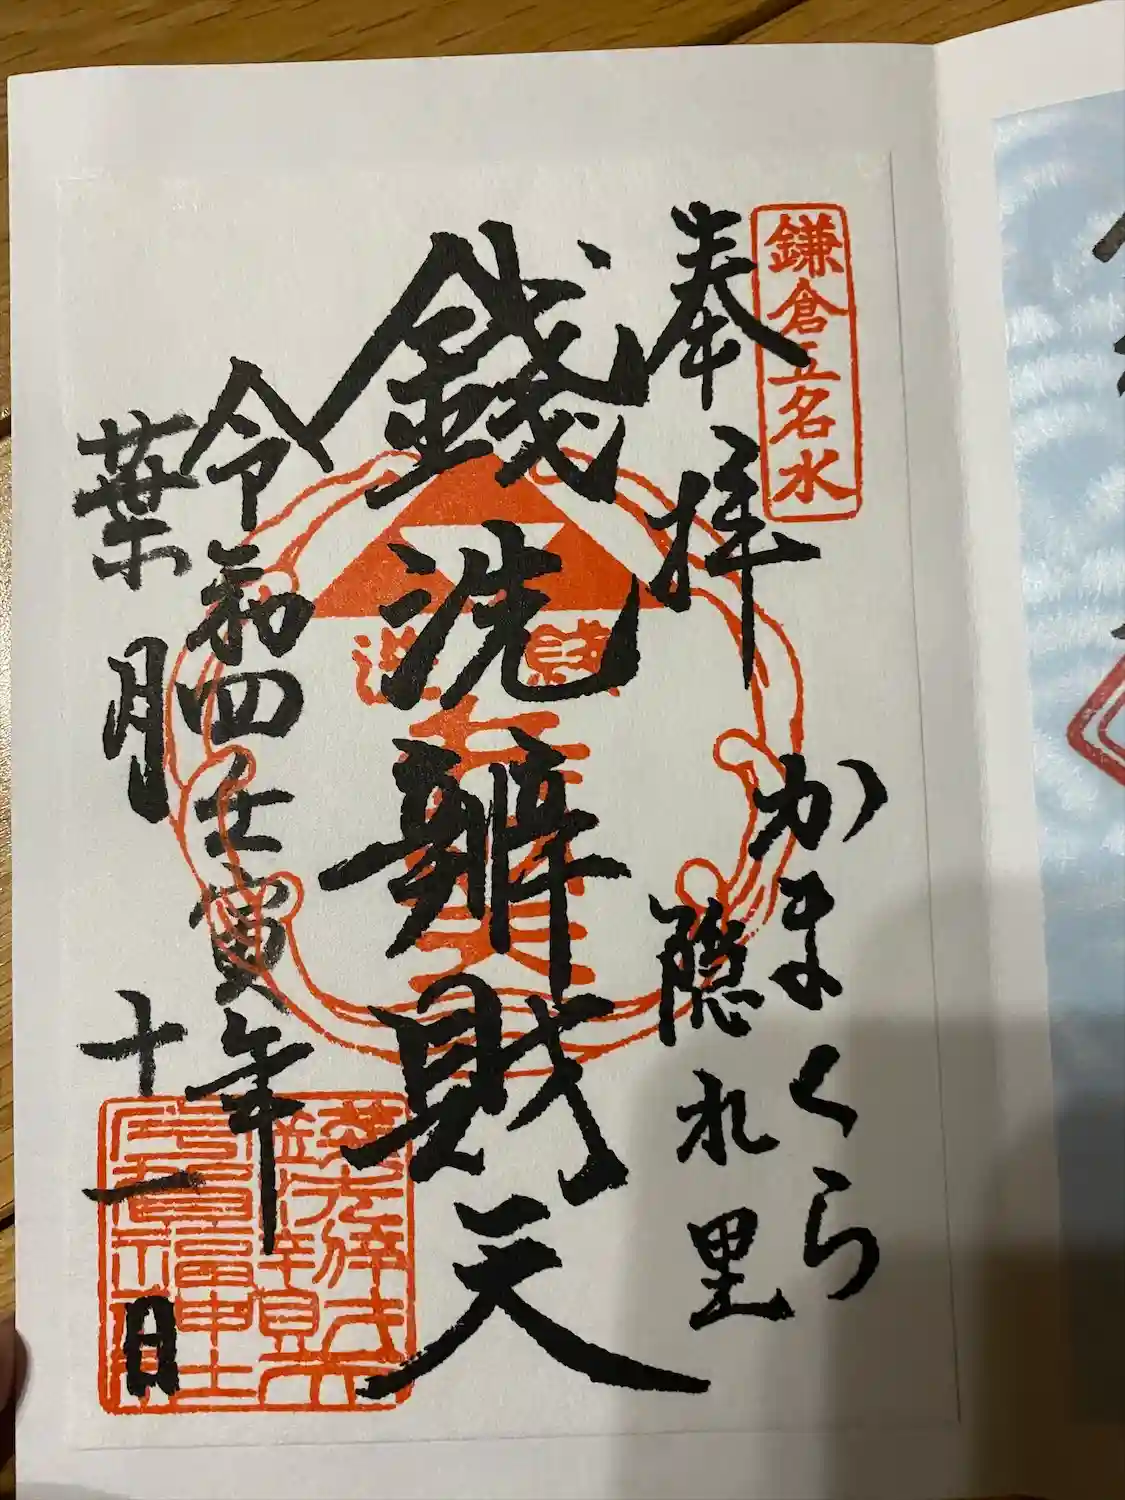 鎌倉五名水
奉拝
かまくら
隠れ里
銭洗辨財天
令和四壬寅年
葉月
十一日